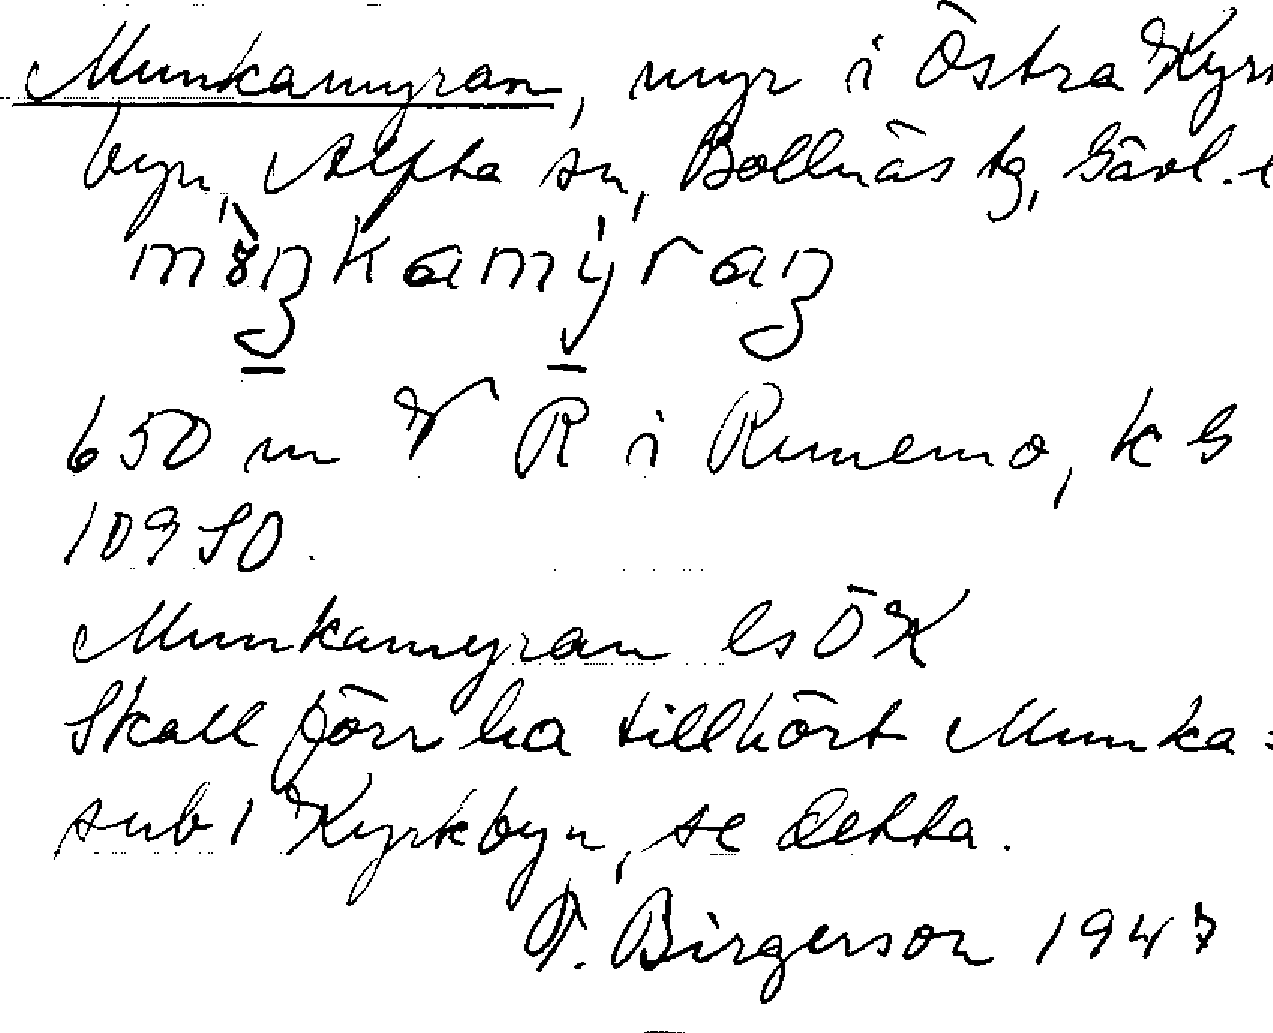 Munkamyran, myr i Östra Kyrk
byn, Alfta sn, Bollnäs tg, Gävl. l
650 m V R i Runemo, k G
109 SO.
Munkamyran ls ÖK
Skall förr ha tillhört Munka=
sub 1 Kyrkbyn, se detta.
F. Birgerson 1947